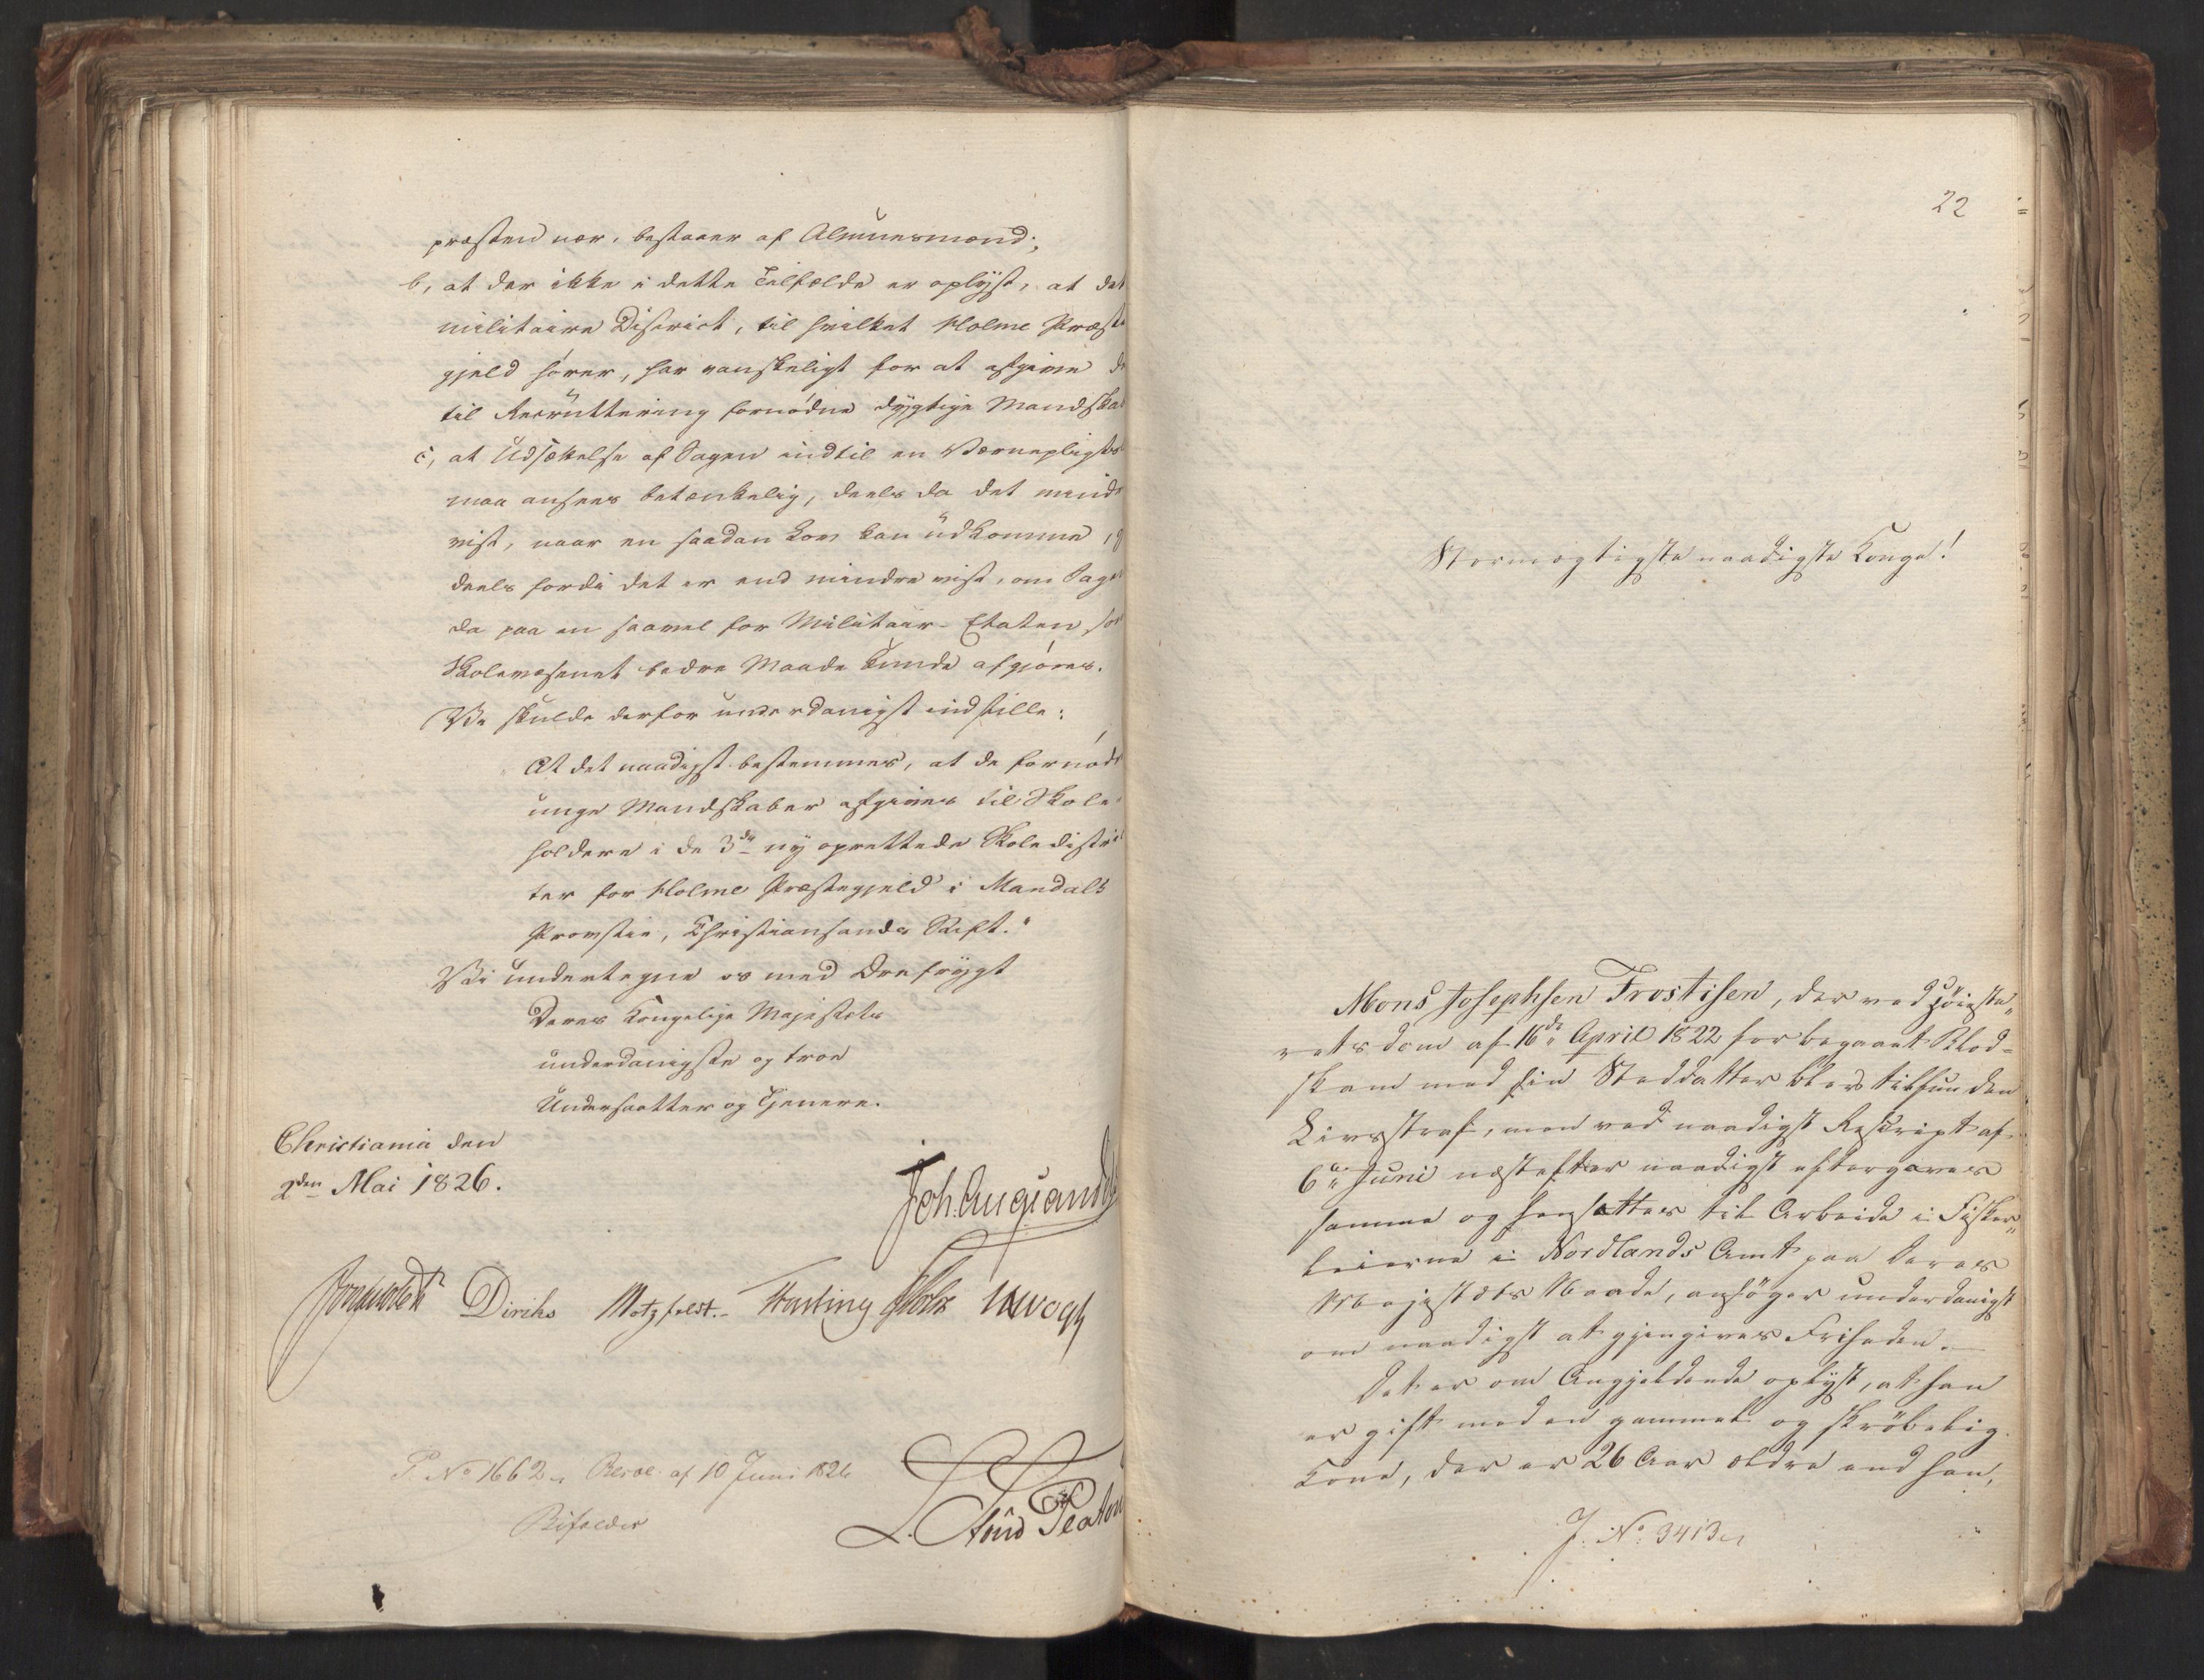 præsten nær, bestaaer af Almuesmænd;
b, at der ikke i dette Tilfælde er oplyst, at det
militaire District, til hvilket Holme Præste
gjeld hører, har vanskeligt for at afgive de
til Recruttering fornødne dygtige Mandskab
c, at Udsættelse af Sagen indtil en Værnepligts
maa ansees betænkelig, deels da det er uvist
vist, naar en saadan Lov kan udkomme, og
deels fordi det er end mindre vist, om Sagen
da paa en saavel for Militair-Etaten, som
Skolevæsenet bedre Maade kunde afgjøres.
Vi skulde derfor underdanigst indstille:
At det naadigst bestemmes, at de fornødne
unge Mandskaber afgives til Skole
holdere i de 3de ny oprettede Skoledistric
ter for Holme Præstegjeld i Mandals
Provstie, Christiansands Stift."
Vi undertegne os med Ærefrygt
Deres Kongelige Majestæts
underdanigste og troe
Undersaatter og Tjenere.
Christiania den
2den Mai 1826.
Joh. Aug. Sandels
Diriks Motzfeldt.- Fasting Holst
P. No 1662. Resol. af 10 Juni 1826
Bifaldes
L. Stud Platou
22
Stormægtigste naadigste Konge!
Mons Josephsen Trostisen, der ved Høieste„
rets Dom af 16de April 1822 for begaaet Blod=
skam med sin Steddatter blev tilfunden
Livsstraf, men ved naadigst Reskript af
6te Juni næstefter naadigst eftergaves
samme og hensattes til Arbeide i Fisker„
leierne i Nordlands Amt paa Deres
Majestæts Naade, ansøger underdanigst
om naadigst at gjengives Friheden.
Det er om Angjeldende oplyst, at han
er gift med en gammel og skrøbelig
Kone, der er 26 Aar ældre end han,
J. No. 3413